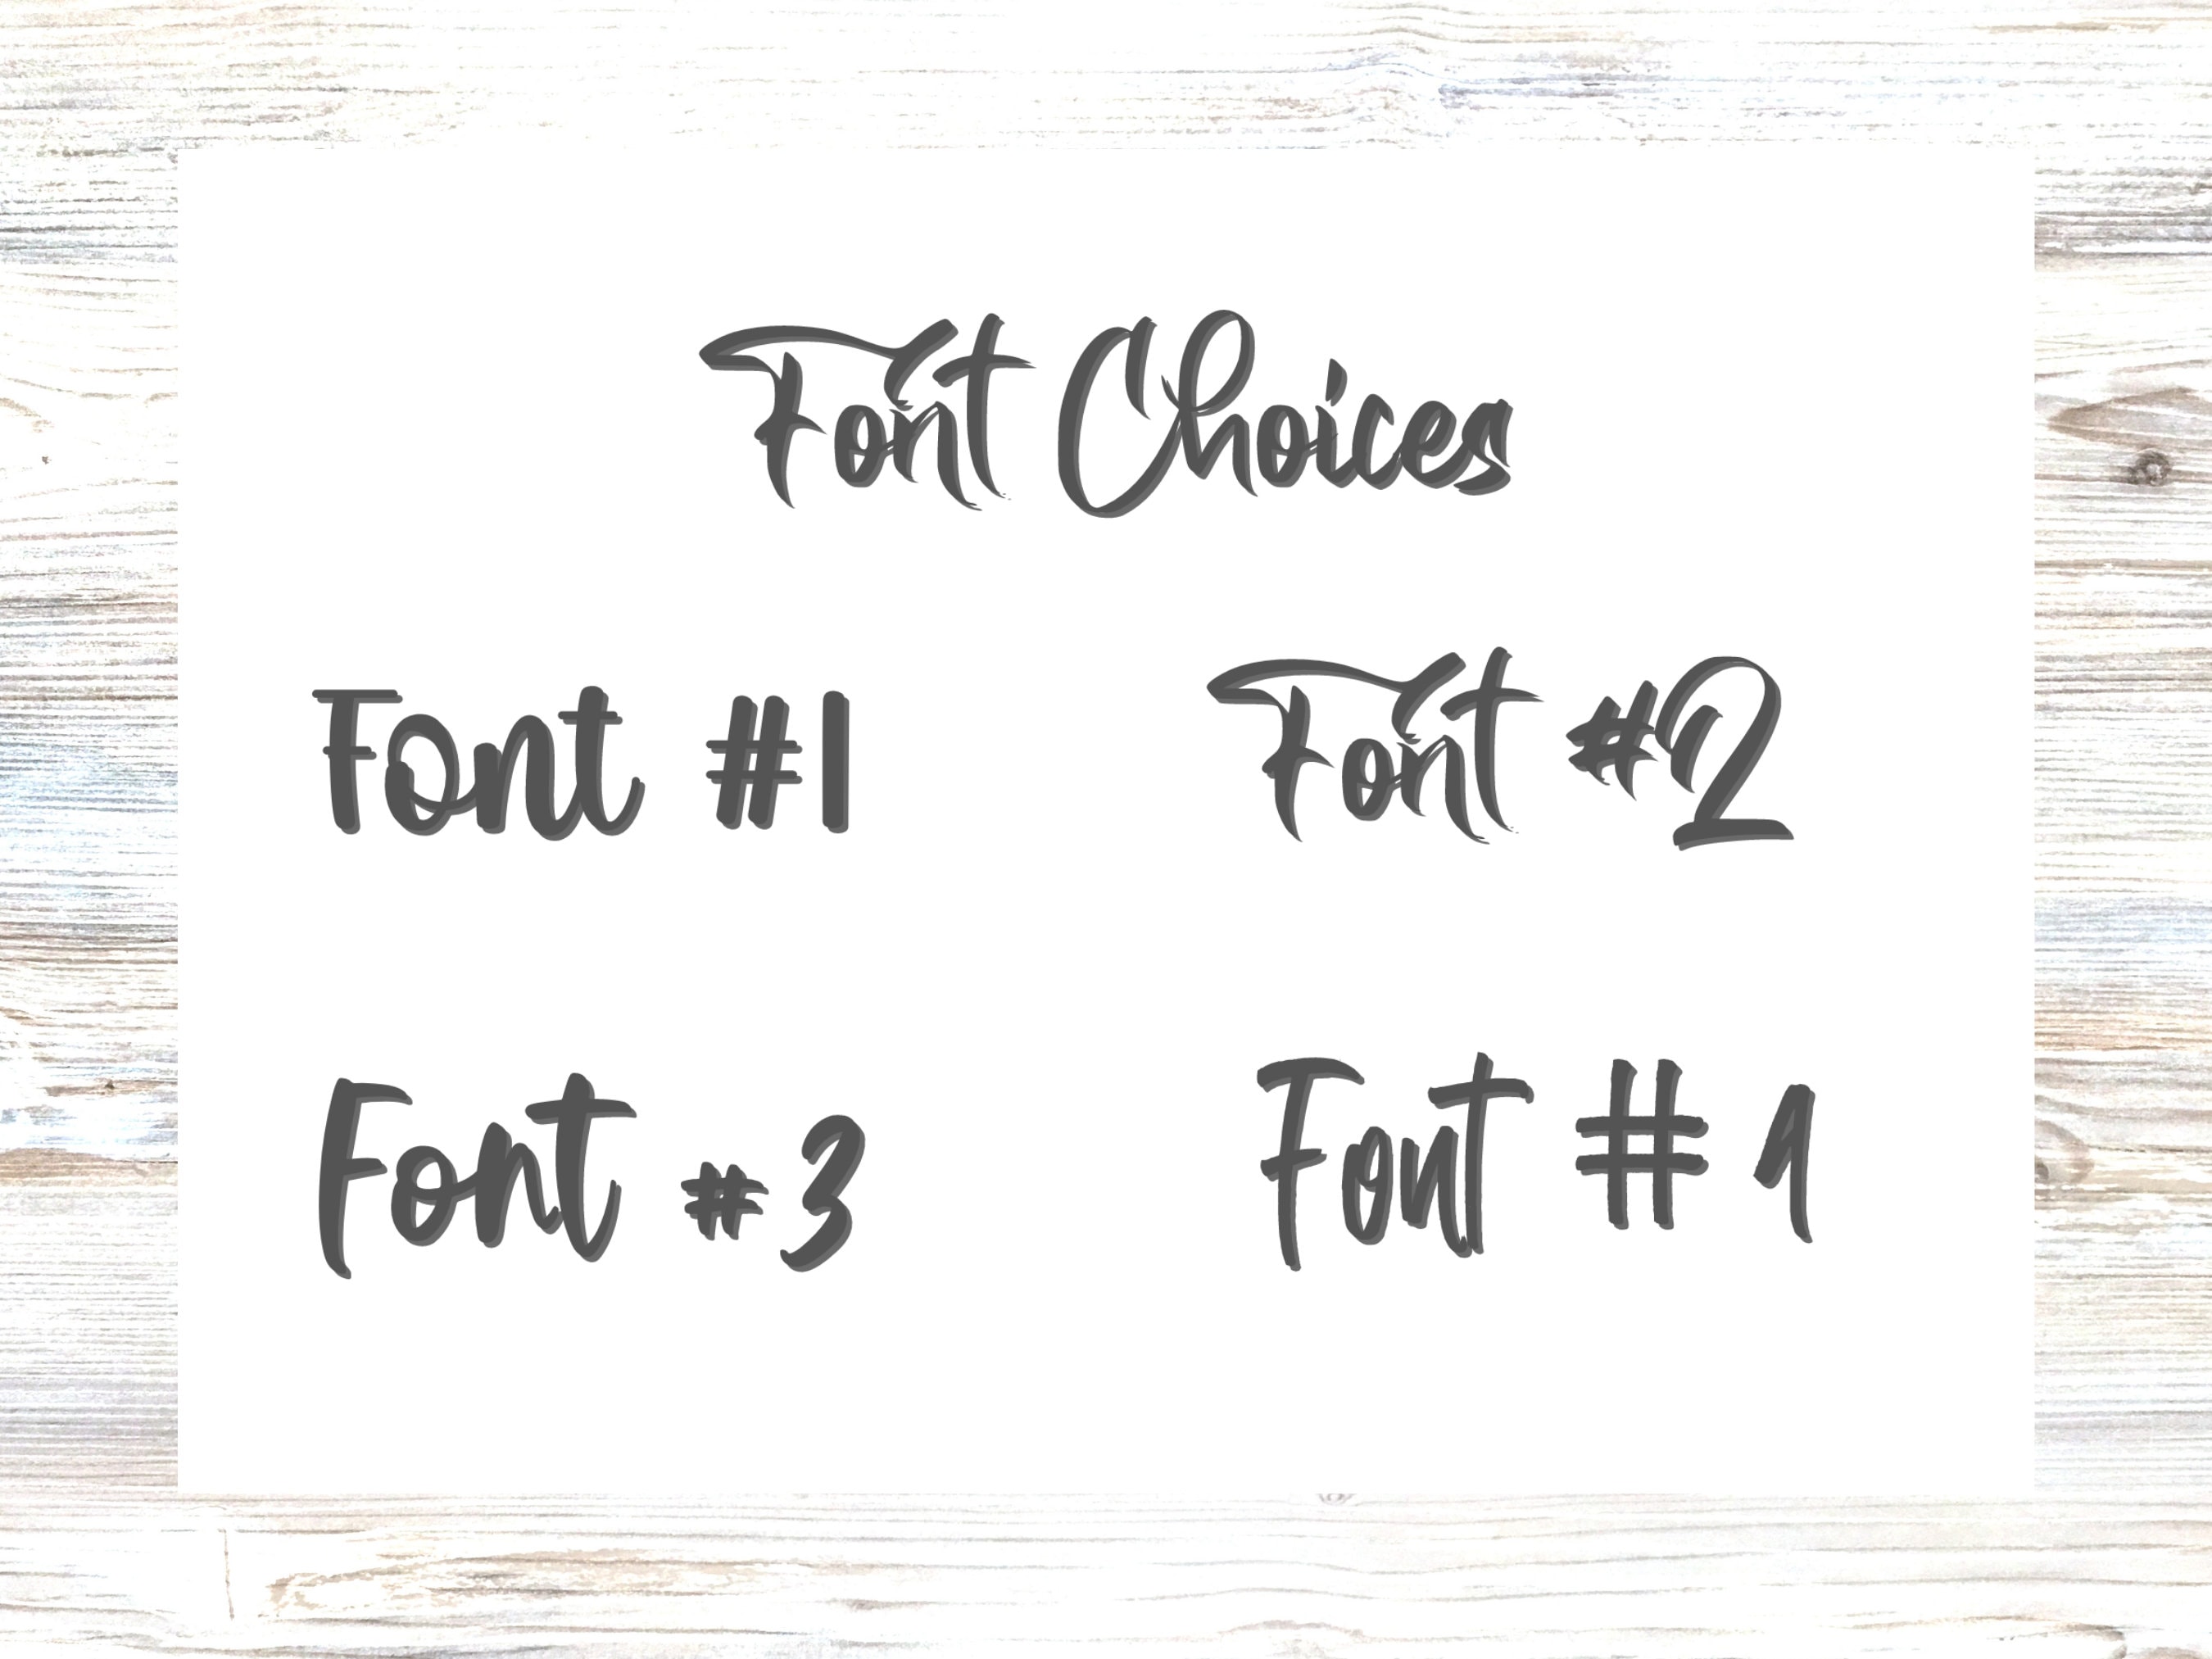 Font Choices
Font #1
Font #2
Font #3
Font # 1